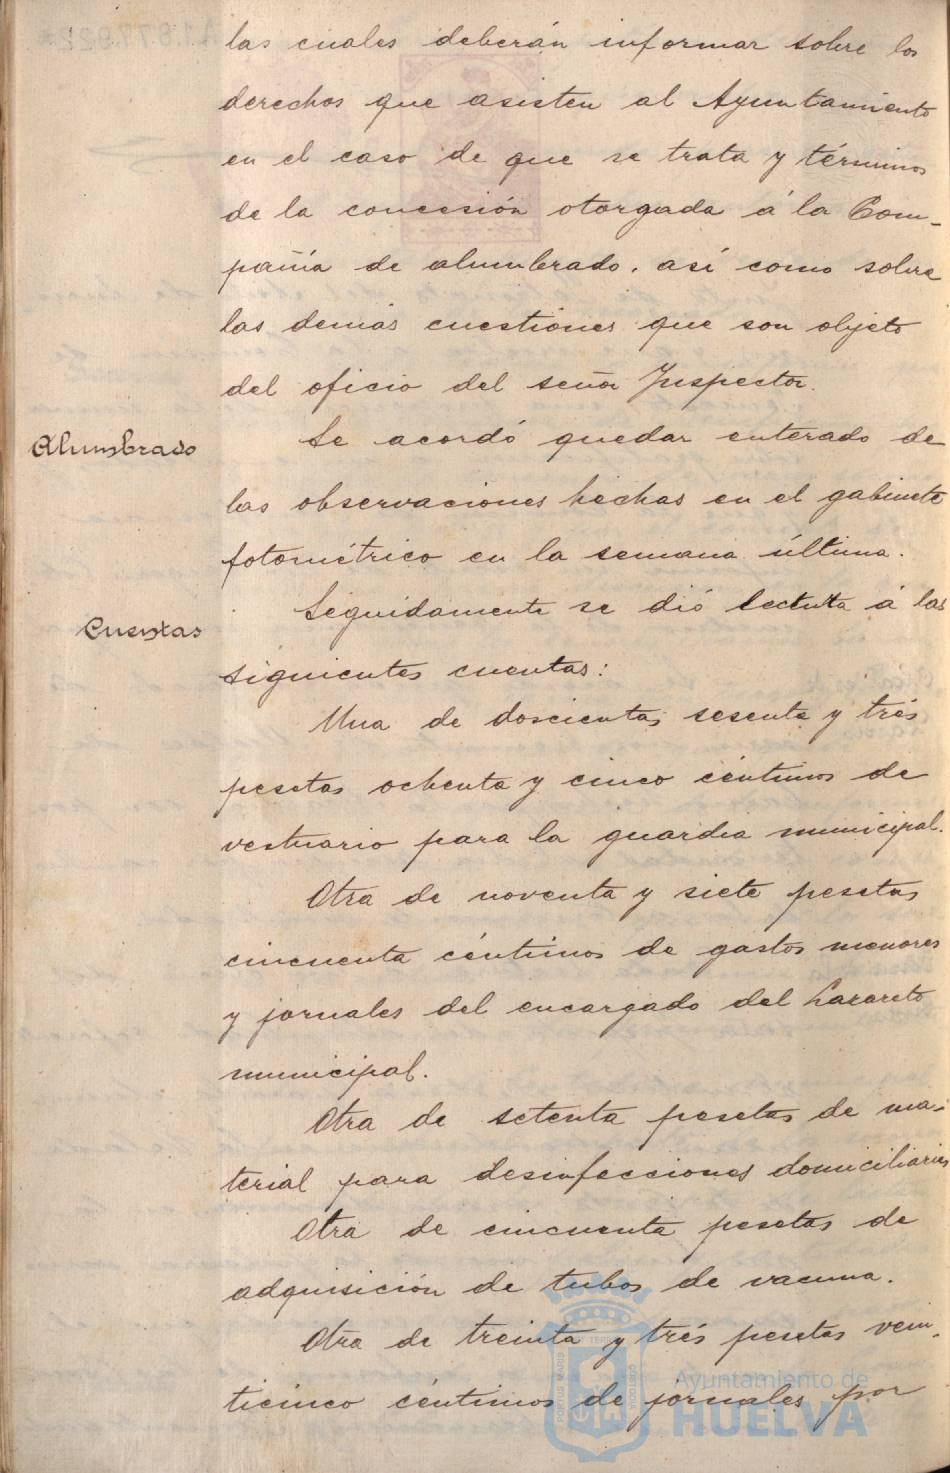 las cuales deberán informar sobre los
derechos que asisten al Ayuntamiento
en el caso de que se trata y términos
de la concesión otorgada á la Com-
pañía de alumbrado. así como sobre
las demás cuestiones que son objeto
del oficio del señor Inspector.
Alumbrado
Se acordó quedar enterado de
las observaciones hechas en el gabinete
fotométrico en la semana última.
Cuentas
Seguidamente se dió lectura á las
siguientes cuentas:
Una de doscientas sesenta y trés
pesetas ochenta y cinco céntimos de
vestuario para la guardia municipal.
Otra de noventa y siete pesetas
cincuenta céntimos de gastos menores
y jornales del encargado del Lazareto
municipal.
Otra de setenta pesetas de ma-
terial para desinfecciones domiciliarias
Otra de cincuenta pesetas de
adquisición de tubos de vacuna.
Otra de treinta y trés pesetas vein-
ticinco céntimos de jornales por
Ayuntamiento de
HUELVA